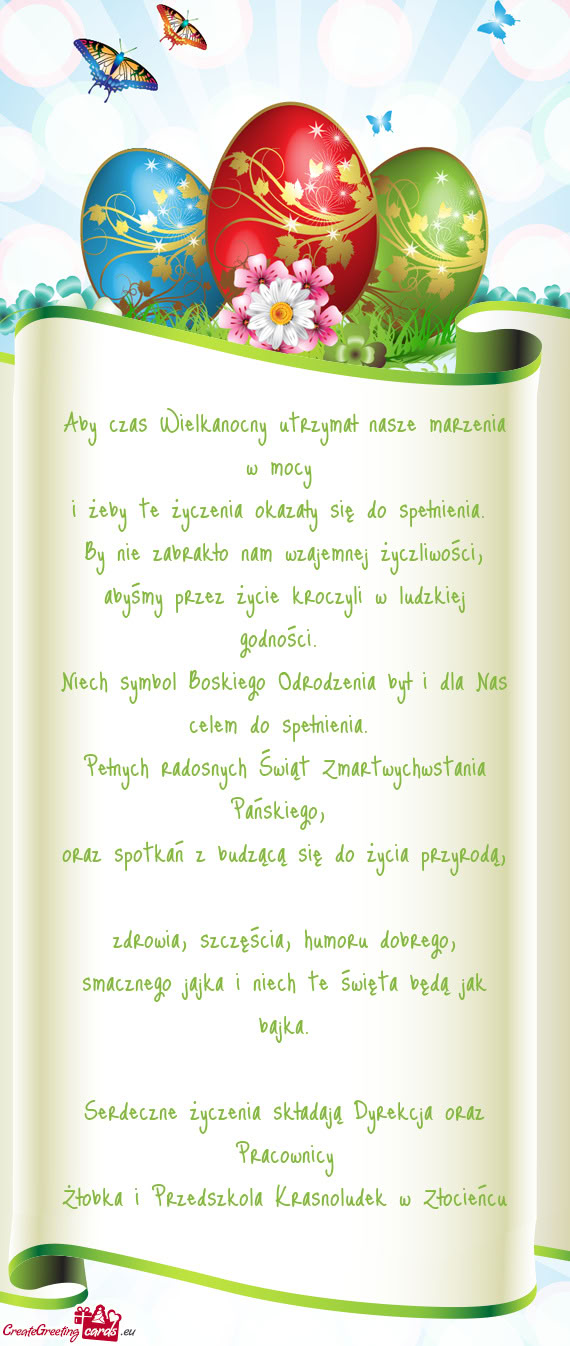 Aby czas Wielkanocny utrzymał nasze marzenia
w mocy
i żeby te życzenia okazały się do spełnienia.
By nie zabrakło nam wzajemnej życzliwości,
abyśmy przez życie kroczyli w ludzkiej
godności.
Niech symbol Boskiego Odrodzenia był i dla Nas
celem do spełnienia.
Pełnych radosnych Świąt Zmartwychwstania
Pańskiego,
oraz spotkań z budzącą się do życia przyrodą,
zdrowia, szczęścia, humoru dobrego,
smacznego jajka i niech te święta będą jak
bajka.
Serdeczne życzenia składają Dyrekcja oraz
Pracownicy
Żłobka i Przedszkola Krasnoludek w Złocieńcu
CreateGreeting cards .eu